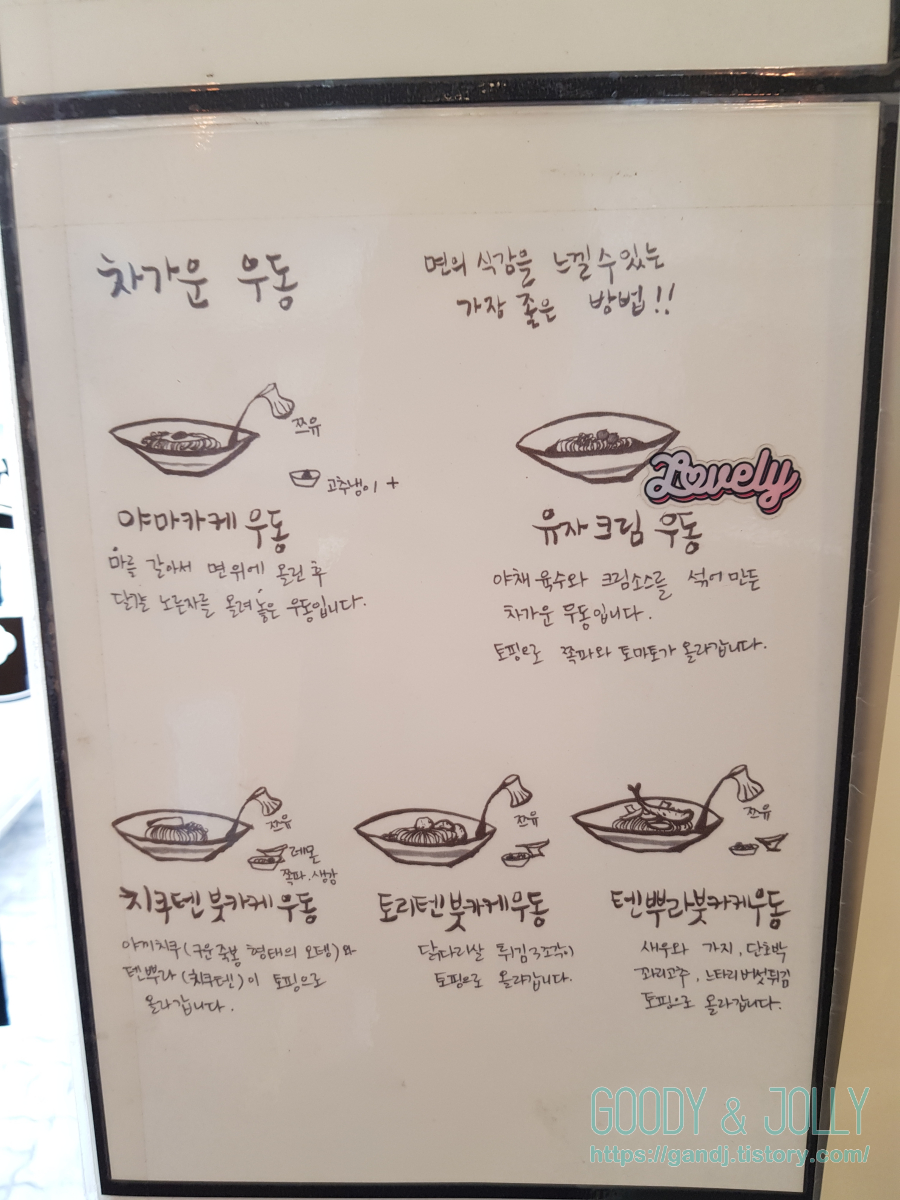 차가운 우동
면의 식감을 느낄 수 있는
가장 좋은 방법!!
쯔유
고추냉이 +
야마카케 우동
마를 갈아서 면 위에 올린 후
달걀 노른자를 올려 놓은 우동입니다.
Lovely
유자 크림 우동
야채 육수와 크림소스를 섞어 만든
차가운 우동입니다.
토핑으로 쪽파와 토마토가 올라갑니다.
쯔유
레몬
쪽파.생강
치쿠텐 붓카케 우동
야끼치쿠(구운 죽봉 형태의 오뎅)와
텐뿌라(치쿠텐)이 토핑으로
올라갑니다.
쯔유
토리텐 붓카케우동
닭다리살 튀김 3조각이
토핑으로 올라갑니다.
쯔유
텐뿌라붓카케우동
새우와 가지, 단호박
꽈리고추, 느타리버섯튀김
토핑으로 올라갑니다.
GOODY & JOLLY
https://gandj.tistory.com/